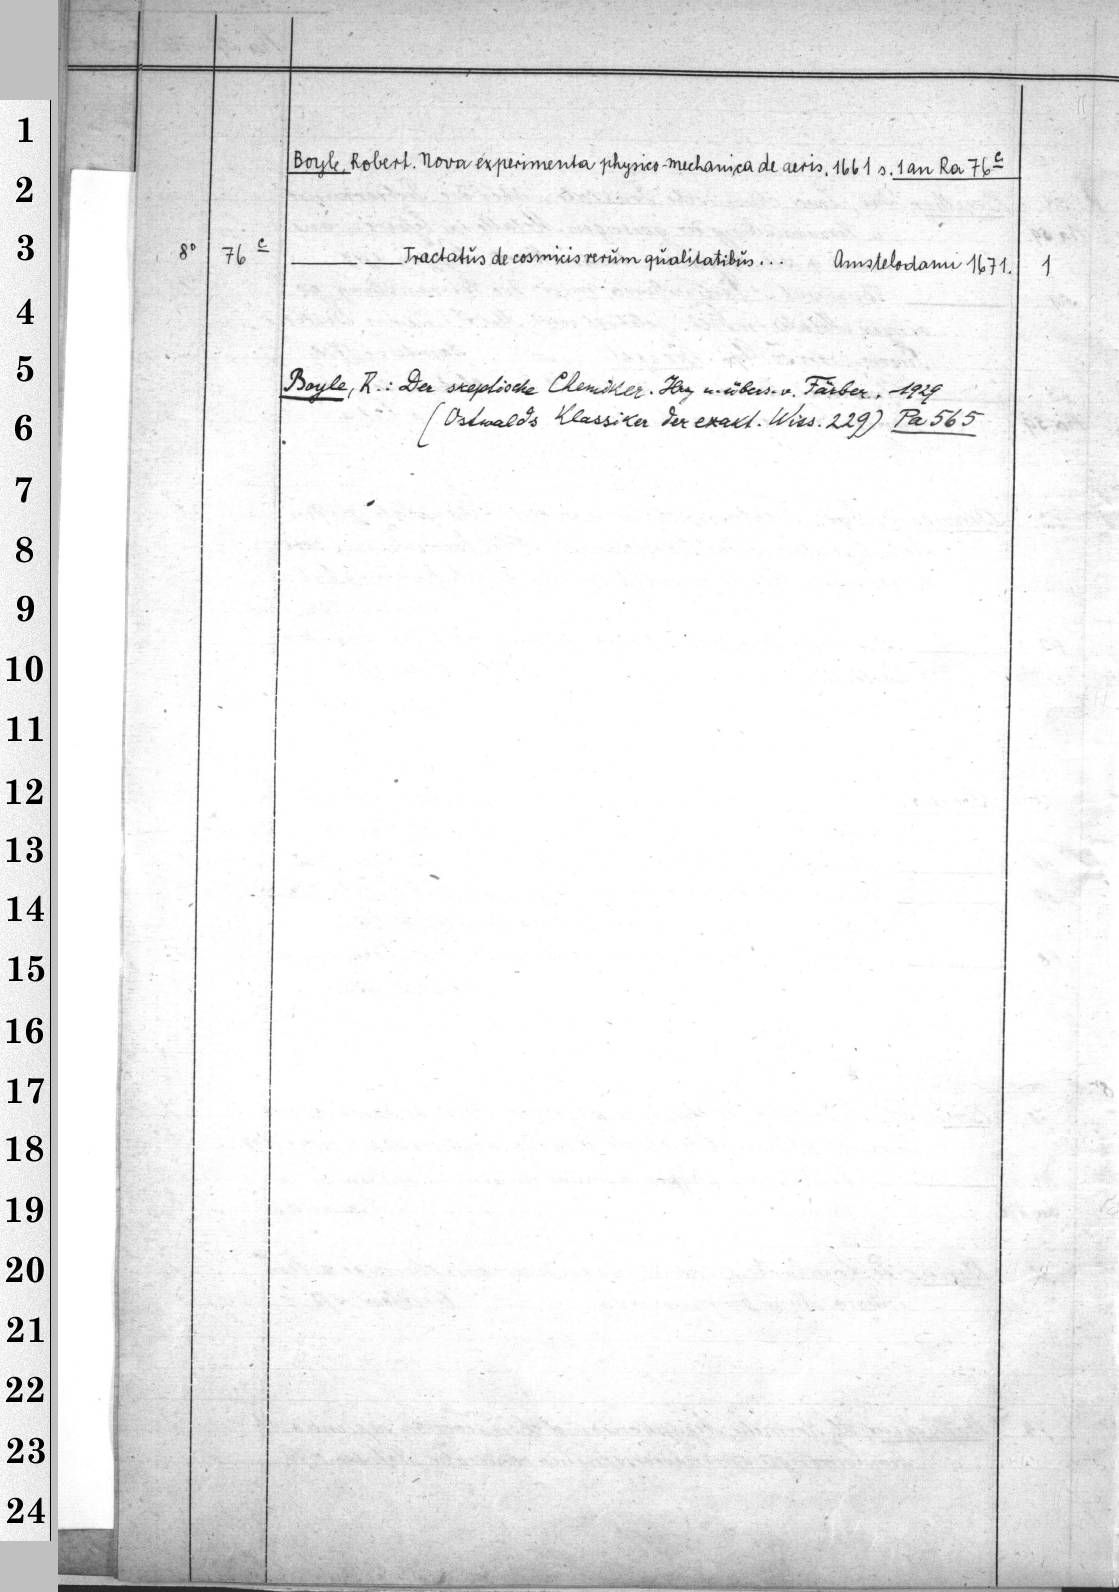 1
Boyle, Robert. Nova experimenta physico-mechanica de aeris. 1661 s. 1 an Ra 76c
2
3
8° 76c ____ ____ Tractatŭs de cosmicis rerŭm qŭalitatibŭs... Amstelodami 1671. 1
4
5
Boyle, R.: Der skeptische Chemiker. Hrg u. übers. v. Färber. 1929
6
(Ostwalds Klassiker der exakt. Wiss. 229) Pa 565
7
8
9
10
11
12
13
14
15
16
17
18
19
20
21
22
23
24